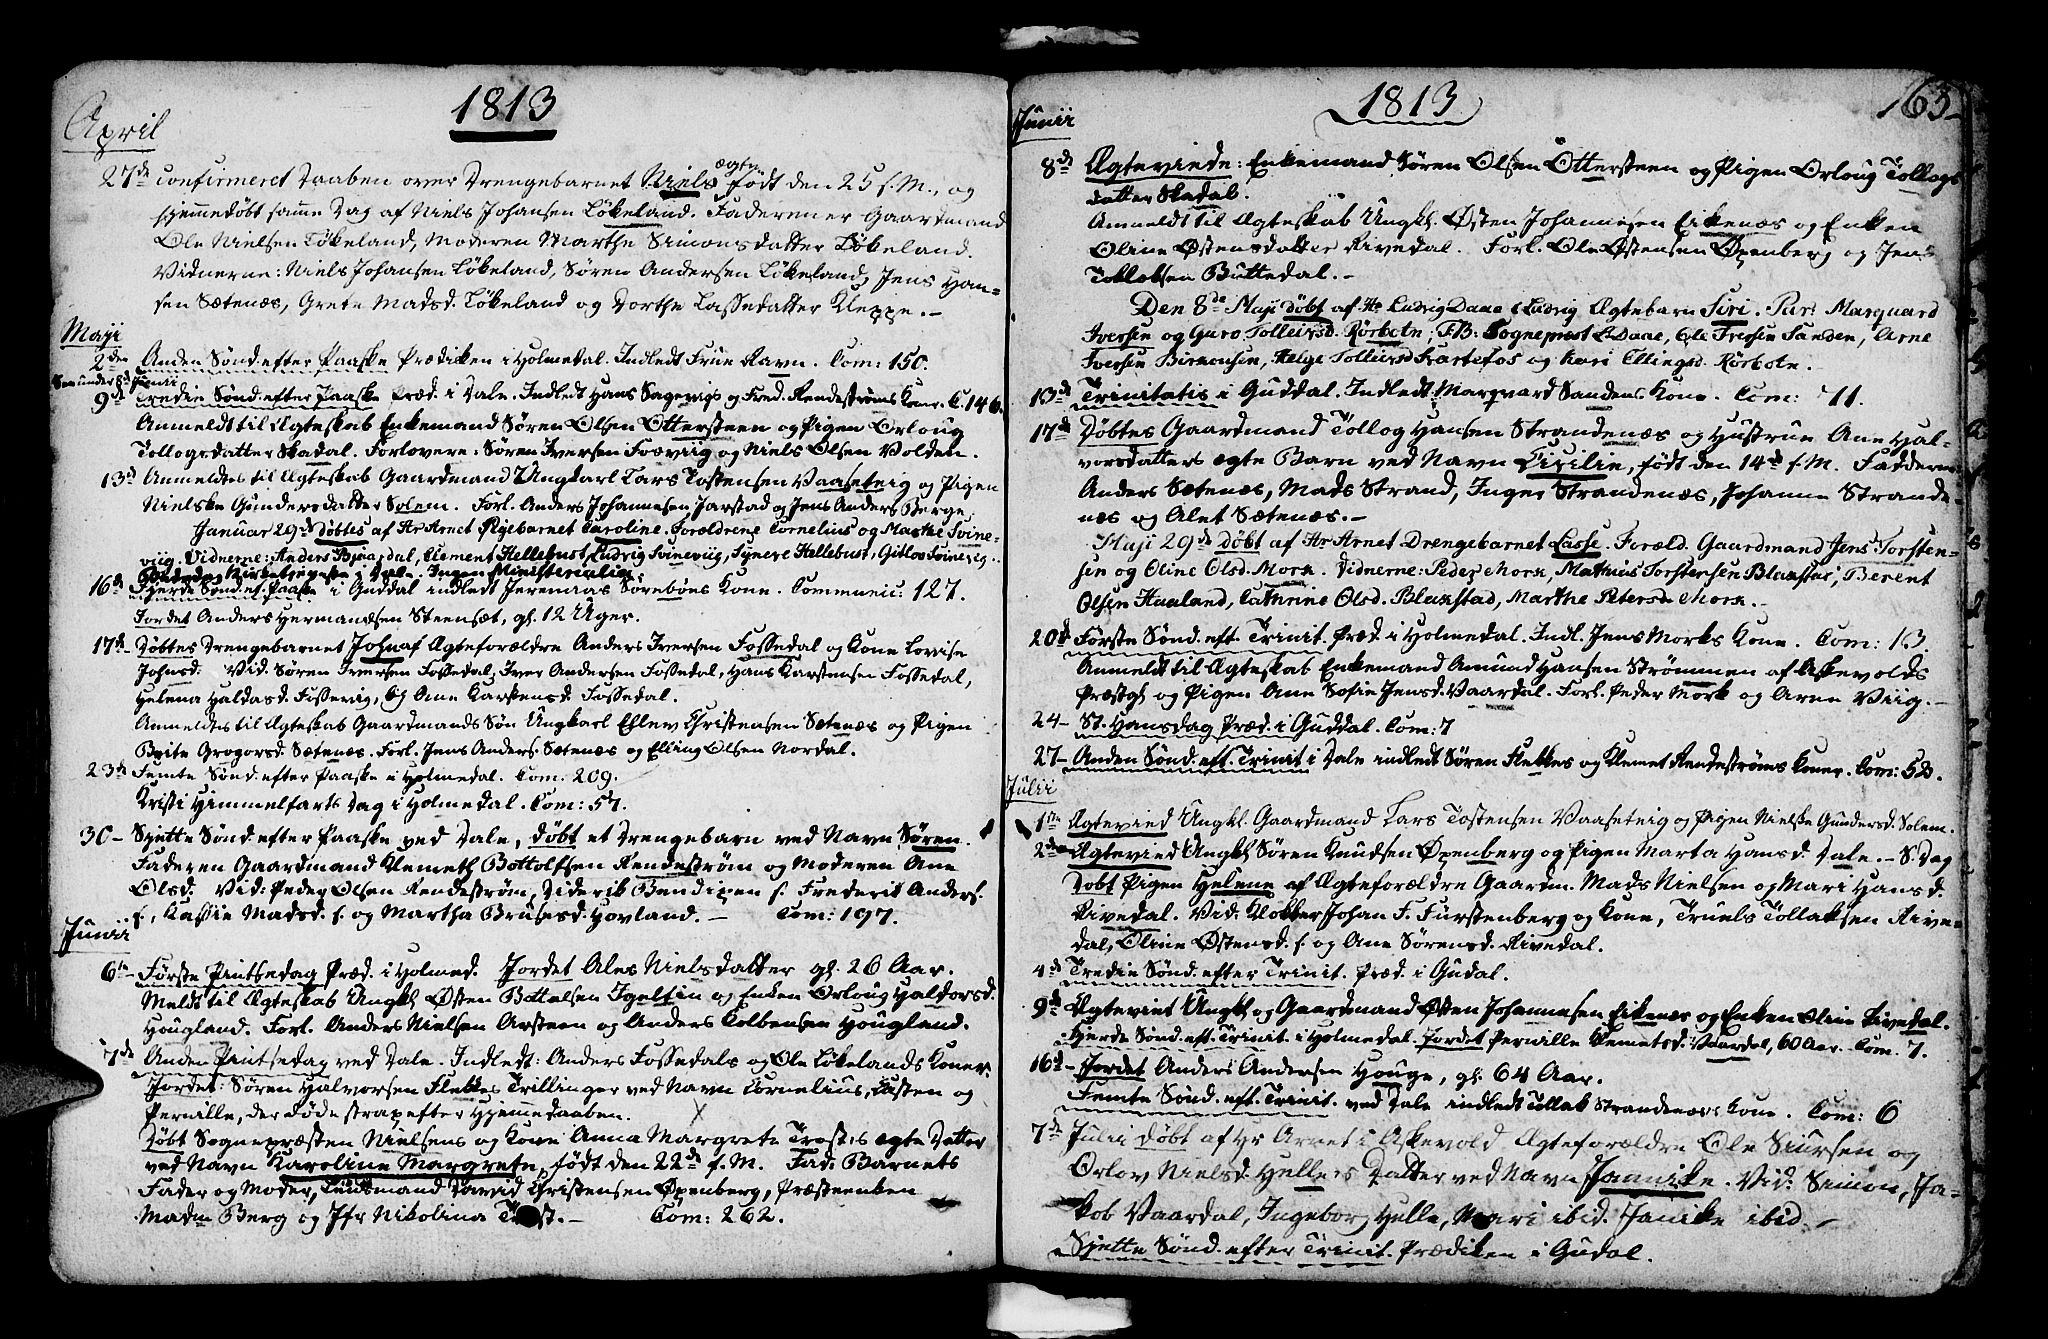 1813
April
27de confirmeret Daaben over Drengebarnet Niels ægte født den 25 f. M., og
hjemmedøbt samme Dag af Niels Johansen Løkeland. Faderen er Gaardmand
Ole Nielsen Løkeland, Moderen Marthe Simonsdatter Løkeland.
Vidnerne: Niels Johansen Løkeland, Søren Andersen Løkeland, Jens Han=
sen Sætenæs, Grete Madsd. Løkeland og Dorthe Lassedatter Kleppe.-
Maji
2den Anden Sønd. efter Paaske Prædiken i Holmedal. Indledt Frue Ravn. Com: 150.
9de Tredie Sønd. efter Paaske Præd. i Dale. Indledt Hans Sagevigs og Fred. Rendestrøms Koner. C. 146.
Anmeldt til Ægteskab Enkemand Søren Olsen Ottersteen og Pigen Orloug
Tollogsdatter Skadal. Forlovere: Søren Iversen Fosviig og Niels Olsen Volden.
13d Anmeldtes til Ægteskab Gaardmand Ungkarl Lars Tostensen Vaasetrig og Pigen
Nielske Gundersdatter Solem. Forl. Anders Johannesen Jarstad og Jens Anders. Berge.
Januar 29d døbtes af Hr Arnet Pigebarnet Caroline. Forældrene Cornelius og Marthe Svine-
viig. Vidnerne: Anders Bjordal, Clement Hellebust, Ludvig Svineviig, Synere Hellebust, Gitlov Svinevig.
16de Fjerde Sønd. ef. Paaske i Guddal indledt Jeremias Sørebøns Kone. Communic: 127.
Jordet Anders Hermansen Steensæt, gl. 12 Uger.
17de Døbtes Drengebarnet John af Ægteforældre Anders Iversen Fossedal og Kone Lovise
Johnsd. Vid. Søren Iversen Fossedal, Iver Andersen Fossedal, Hans Karstensen Fossedal,
Helena Haldasd. Fossevig, og Ane Karstensd. Fossedal.
Anmeldtes til Ægteskab Gaardmands Søn Ungkarl Ellev Christensen Sætenæs og Pigen
Brite Grogorsd. Sætenæs. Forl. Jens Anders. Sætenæs og Elling Olsen Nordal.
23de Femte Sønd. efter Paaske i Holmedal. Com. 209.
Kristi Himmelfarts Dag i Holmedal. Com: 57.
30- Sjette Sønd. efter Paaske ved Dale, døbt et Drengebarn ved Navn Søren.
Faderen Gaardmand Klemeth Bottolfsen Rendestrøm og Moderen Ane
Olsd. Vid: Peder Olsen Rendestrøm, Diderik Bendixen s. Frederik Anders.
s., Kassie Madsd. s. og Martha Brusesd. Hovland.- Com: 197.
Junii
6te Første Pintsedag Præd. i Holmed. Jordet Ales Nielsdatter gl. 26 Aar.
Meldt til Ægteskab Ungkl Østen Bottelsen Igelsin og Enken Orloug Haldorsd.
Hougland. Forl. Anders Nielsen Arsteen og Anders Kolbensen Hougland.
7de Anden Pintsedag ved Dale. Indledt: Anders Fossedals og Ole Løkelands Koner.
Jordet: Søren Halvorsen Flekkes Trillinger ved Navn Cornelius, Kasten og
Pernille, der døde strax efter Hjemmedaaben.
Døbt Sognepræsten Nielsens og Kone Anna Margrete Trostes ægte Datter
ved Navn Karoline Margrete, født den 22de f. M. Fad: Barnets
Fader og Moder, Lensmand David Christensen Øxenberg, Præsteenken
Madm Berg og Jfr Nikolina Trost.- Com: 262.
1813
163
Junii
8de Ægteviede: Enkemand Søren Olsen Ottersteen og Pigen Orloug Tollogs
datter Skadal.
Anmeldt til Ægteskab Ungkl. Østen Johannesen Eikenæs og Enken
Oline Østensdatter Rivedal. Forl. Ole Østensen Øxenberg og Jens
Tollefsen Buttedal.-
Den 8de Maji døbt af Hr Ludvig Daae Ægtebarn Siri. Par: Marquard
Iversen og Guro Tolleivsd. Rørbotn; F.B: Sogneprest L. Daae, Ole Iversen Sanden, Arne
Iversen Birkonsen, Helge Tolleivsd Kartefos og Kari Ellingsd. Rørbotn.-
13de Trinitatis i Guddal. Indledt Marqvard Sandens Kone. Com: 71.
17de Døbtes Gaardmand Tollog Hansen Strandenæs og Hustrue Ane Hal-
vorsdatters ægte Barn ved Navn Cicilie, født den 14de f. M. Faddere
Anders Sætenæs, Mads Strand, Inger Strandenæs, Johanne Strande-
næs og Alet Sætenæs.-
Maji 29de døbt af Hr Arnet Drengebarnet Lasse. Foræld. Gaardmand Jens Torsten-
sen og Oline Olsd. Mork. Vidnerne: Peder Mork, Mathias Torstensen Blaxstad, Berent
Olsen Haaland, Cathrine Olsd. Blaxstad, Marthe Petersd. Mork.-
20de Første Sønd. eft. Trinit. Præd. i Holmedal. Indl. Jens Morks Kone. Com: 13.
Anmeldt til Ægteskab Enkemand Amund Hansen Strømmen af Askevolds
Præstgl og Pigen Ane Sofie Jensd. Vaardal. Forl. Peder Mork og Arne Viig.-
24- St. Hansdag Præd. i Guddal. Com: 7
27- Anden Sønd. eft. Trinit i Dale indledt Søren Flekkes og Klemet Rendestrøms Koner. Com: 58.
Julii
1ste Ægteviet Ungkl. Gaardmand Lars Tostensen Vaasetrig og Pigen Nielske Gundersd. Solem.
2den Ægteviet Ungkl Søren Knudsen Øxenberg og Pigen Marta Hansd. Dale.- S. Dag
Døbt Pigen Helene af Ægteforældre Gaardm. Mads Nielsen og Mari Hansd.
Rivedal. Vid: Klokker Johan F. Fürstenberg og Kone, Truels Tollaksen Rive-
dal, Oline Østensd. s. og Ane Sørensd. Rivedal.
4de Tredie Sønd. efter Trinit. Præd. i Gudal.
9de Ægteviet Ungkl og Gaardmand Østen Johannesen Eikenæs og Enken Oline Rivedal.
Fjerde Sønd. eft. Trinit. i Holmedal. Jordet Pernille Klemetsd: Vaardal, 60 Aar. Com. 7.
16d- Jordet Anders Andersen Houge, gl. 64 Aar.
Femte Sønd. eft. Trinit. ved Dale indledt Tollak Strandenæs's Kone. Com: 6
7de Julii døbt af Hr Arnet i Askevold Ægteforældre Ole Siursen og
Orlov Nielsd. Helles Datter ved Navn Jannike. Vid: Simon, Ja-
kob Vaardal, Ingeborg Helle, Mari ibid. Janike ibid.-
Sjette Sønd. efter Trinit. Prædiken i Gudal.